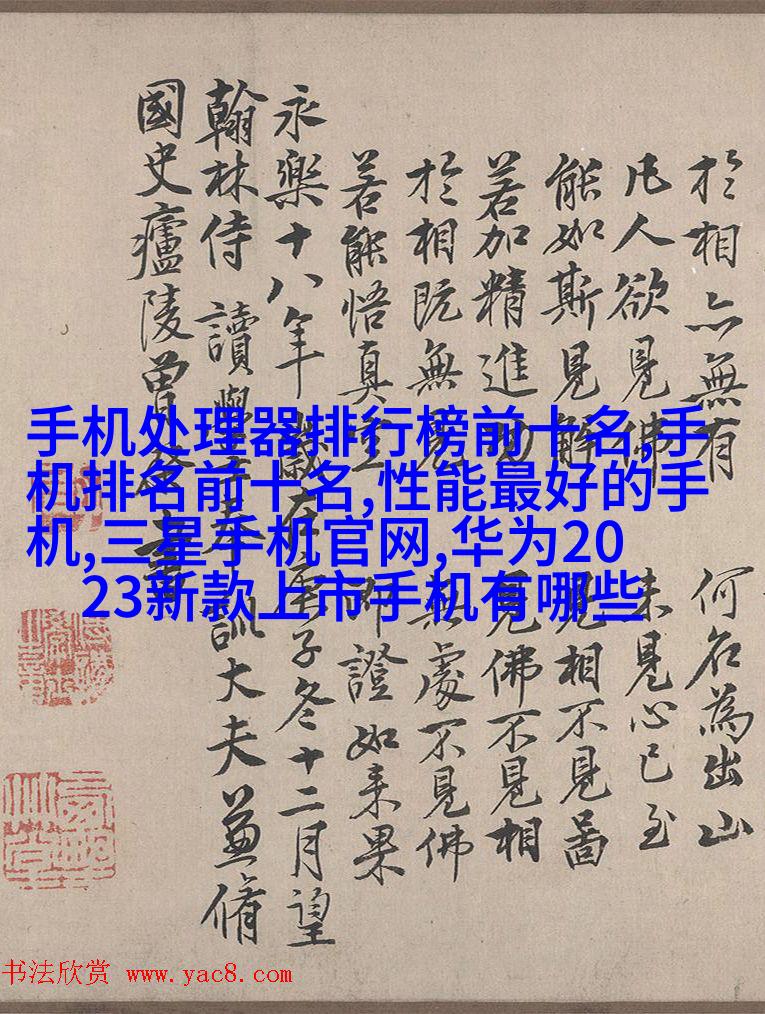 於相亦無有 何名為出山
凡人欲見佛 未見心已至
能如斯見解 見相不見啚
若加精進功 見佛不見相
於相既無見 無處不見佛
若能悟真空 所證如来果
永樂十八年歲在庚子冬十二月望
翰林侍讀學士奉訓大夫兼脩
國史廬陵曾棨書
手机处理器排行榜前十名,手
机排名前十名,性能最好的手
机,三星手机官网,华为20
23新款上市手机有哪些
书法欣赏 www.yac8.com